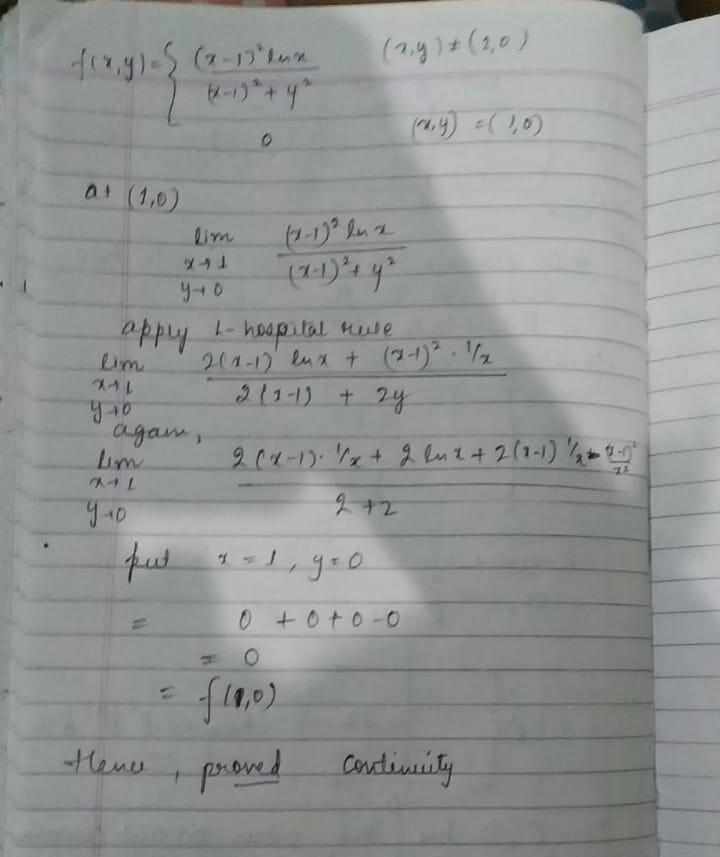 f(x,y) = { (x-1)² ln x / (x-1)² + y²    (x,y) ≠ (1,0)
0    (x,y) = (1,0)
at (1,0)
lim x→1 y→0 (x-1)² ln x / (x-1)² + y²
apply L-hospital rule
lim x→1 y→0 2(x-1) ln x + (x-1)² · 1/x / 2(x-1) + 2y
again,
lim x→1 y→0 2(x-1) · 1/x + 2 ln x + 2(x-1) 1/x - (x-1)²/x² / 2+2
put x=1, y=0
= 0 + 0 + 0 - 0
= 0
= f(1,0)
Hence, proved continuity